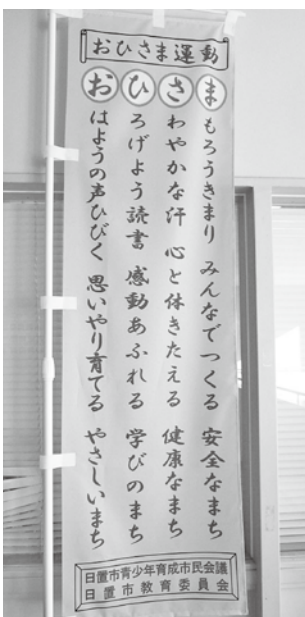 おひさま運動
おはようの声ひびく 思いやり育てる やさしいまち
ひろげよう読書 感動あふれる 学びのまち
さわやかな汗 心と体きたえる 健康なまち
まもろうきまり みんなでつくる 安全なまち
日置市青少年育成市民会議
日置市教育委員会